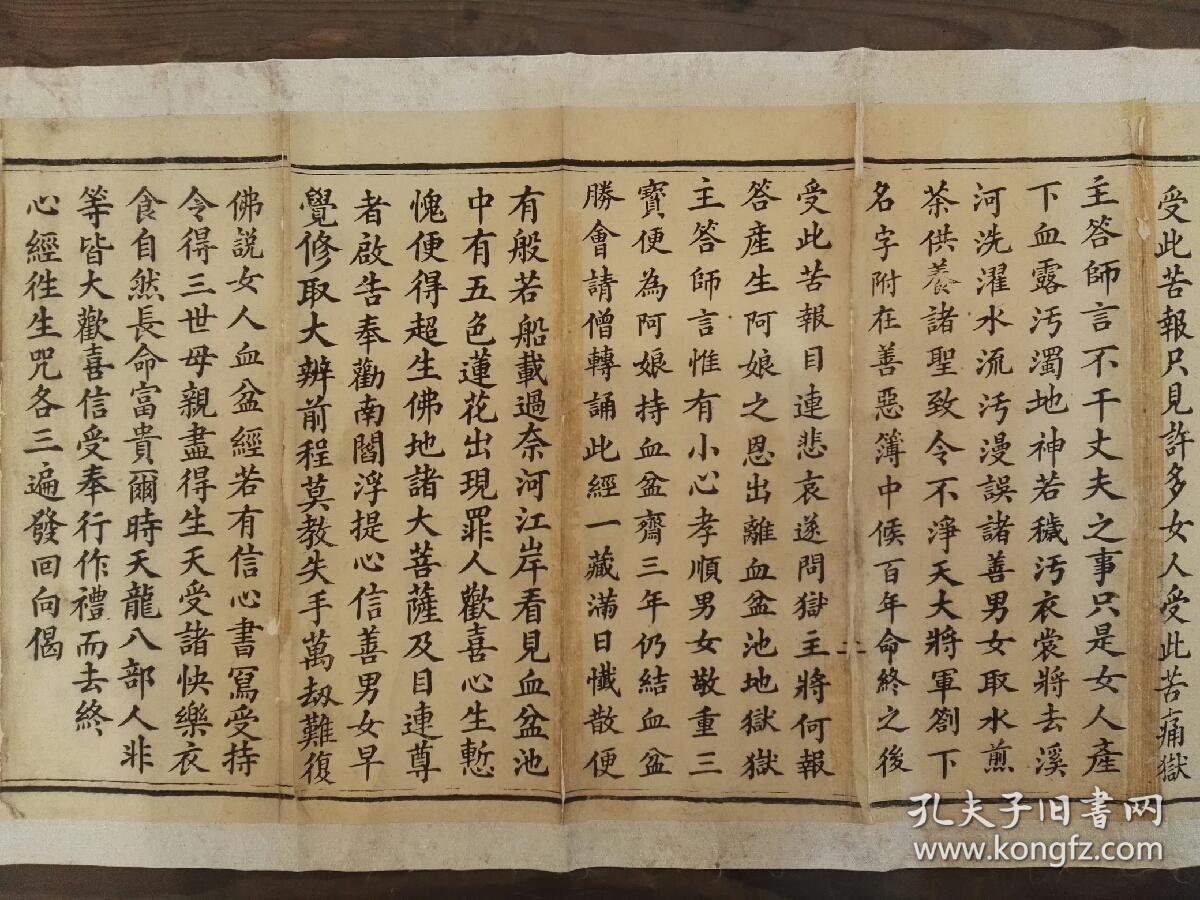 受此苦報只見許多女人受此苦痛獄
主答師言不干丈夫之事只是女人產
下血露汚濁地神若穢汚衣裳將去溪
河洗濯水流汚漫誤諸善男女取水煎
茶供養諸聖致令不淨天大將軍劄下
名字附在善惡簿中候百年命終之後
二
受此苦報目連悲哀遂問獄主將何報
答產生阿娘之恩出離血盆池地獄獄
主答師言惟有小心孝順男女敬重三
寳便為阿娘持血盆齋三年仍結血盆
勝會請僧轉誦此經一藏滿日懺散便
有般若船載過奈河江岸看見血盆池
中有五色蓮花出現罪人歡喜心生慙
愧便得超生佛地諸大菩薩及目連尊
者啟告奉勸南閻浮提心信善男女早
覺修取大辨前程莫教失手萬劫難復
佛説女人血盆經若有信心書寫受持
令得三世母親盡得生天受諸快樂衣
食自然長命富貴爾時天龍八部人非
等皆大歡喜信受奉行作禮而去終
心經徃生咒各三遍發回向偈
孔夫子旧书网
www.kongfz.com